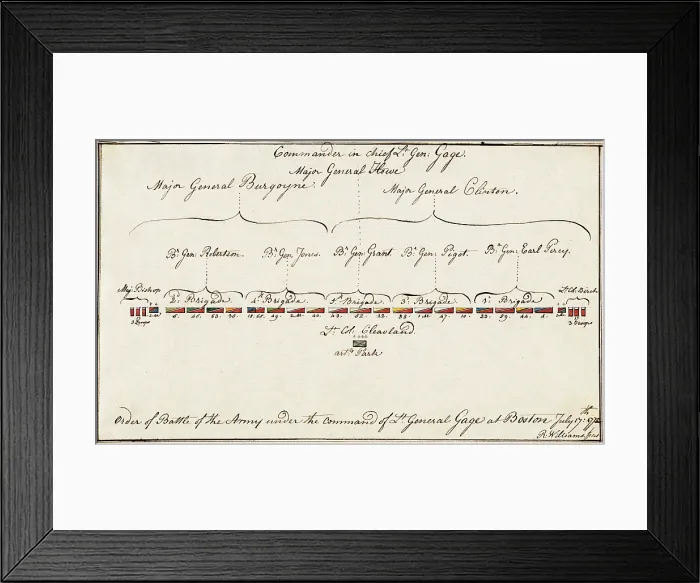 Commander in chief Lt. Gen: Gage.
Major General Howe
Major General Burgoyne.
Major General Clinton.
Br. Gen: Robertson. Br. Gen: Jones. Br. Gen: Grant. Br: Gen: Pigot. Br. Gen: Earl Percy.
Maj: Bishop Lt. Col: Birch
2d. Brigade. 4th. Brigade. 5th. Brigade. 3d. Brigade. 1st. Brigade
3 Troops 5. 38. 2.M. 43. 52. 1.M. 47. 10. 23. 59. 44. 4. 3 Troops
Lt. Col: Cleaveland.
arty. Park
Order of Battle of the Army under the command of Lt. General Gage at Boston July 17th:
R. Williams